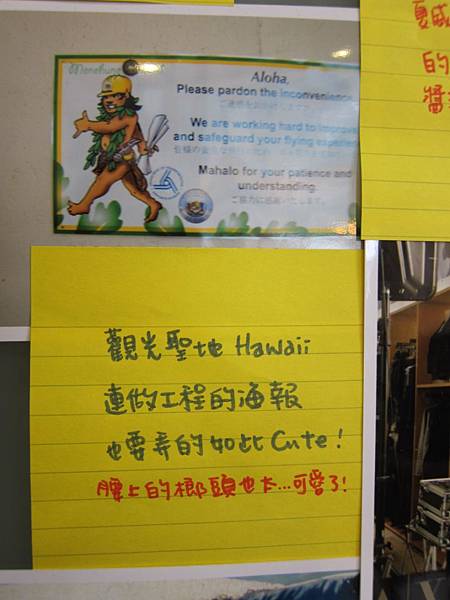 Menehune
Aloha,
Please pardon the inconvenience
We are working hard to improve
and safeguard your flying experience
Mahalo for your patience and
understanding.
ご協力に感謝いたします。
夏威
的
醬
觀光聖地 Hawaii
連做工程的海報
也要弄的如此 Cute!
腰上的榔頭也太...可愛了!